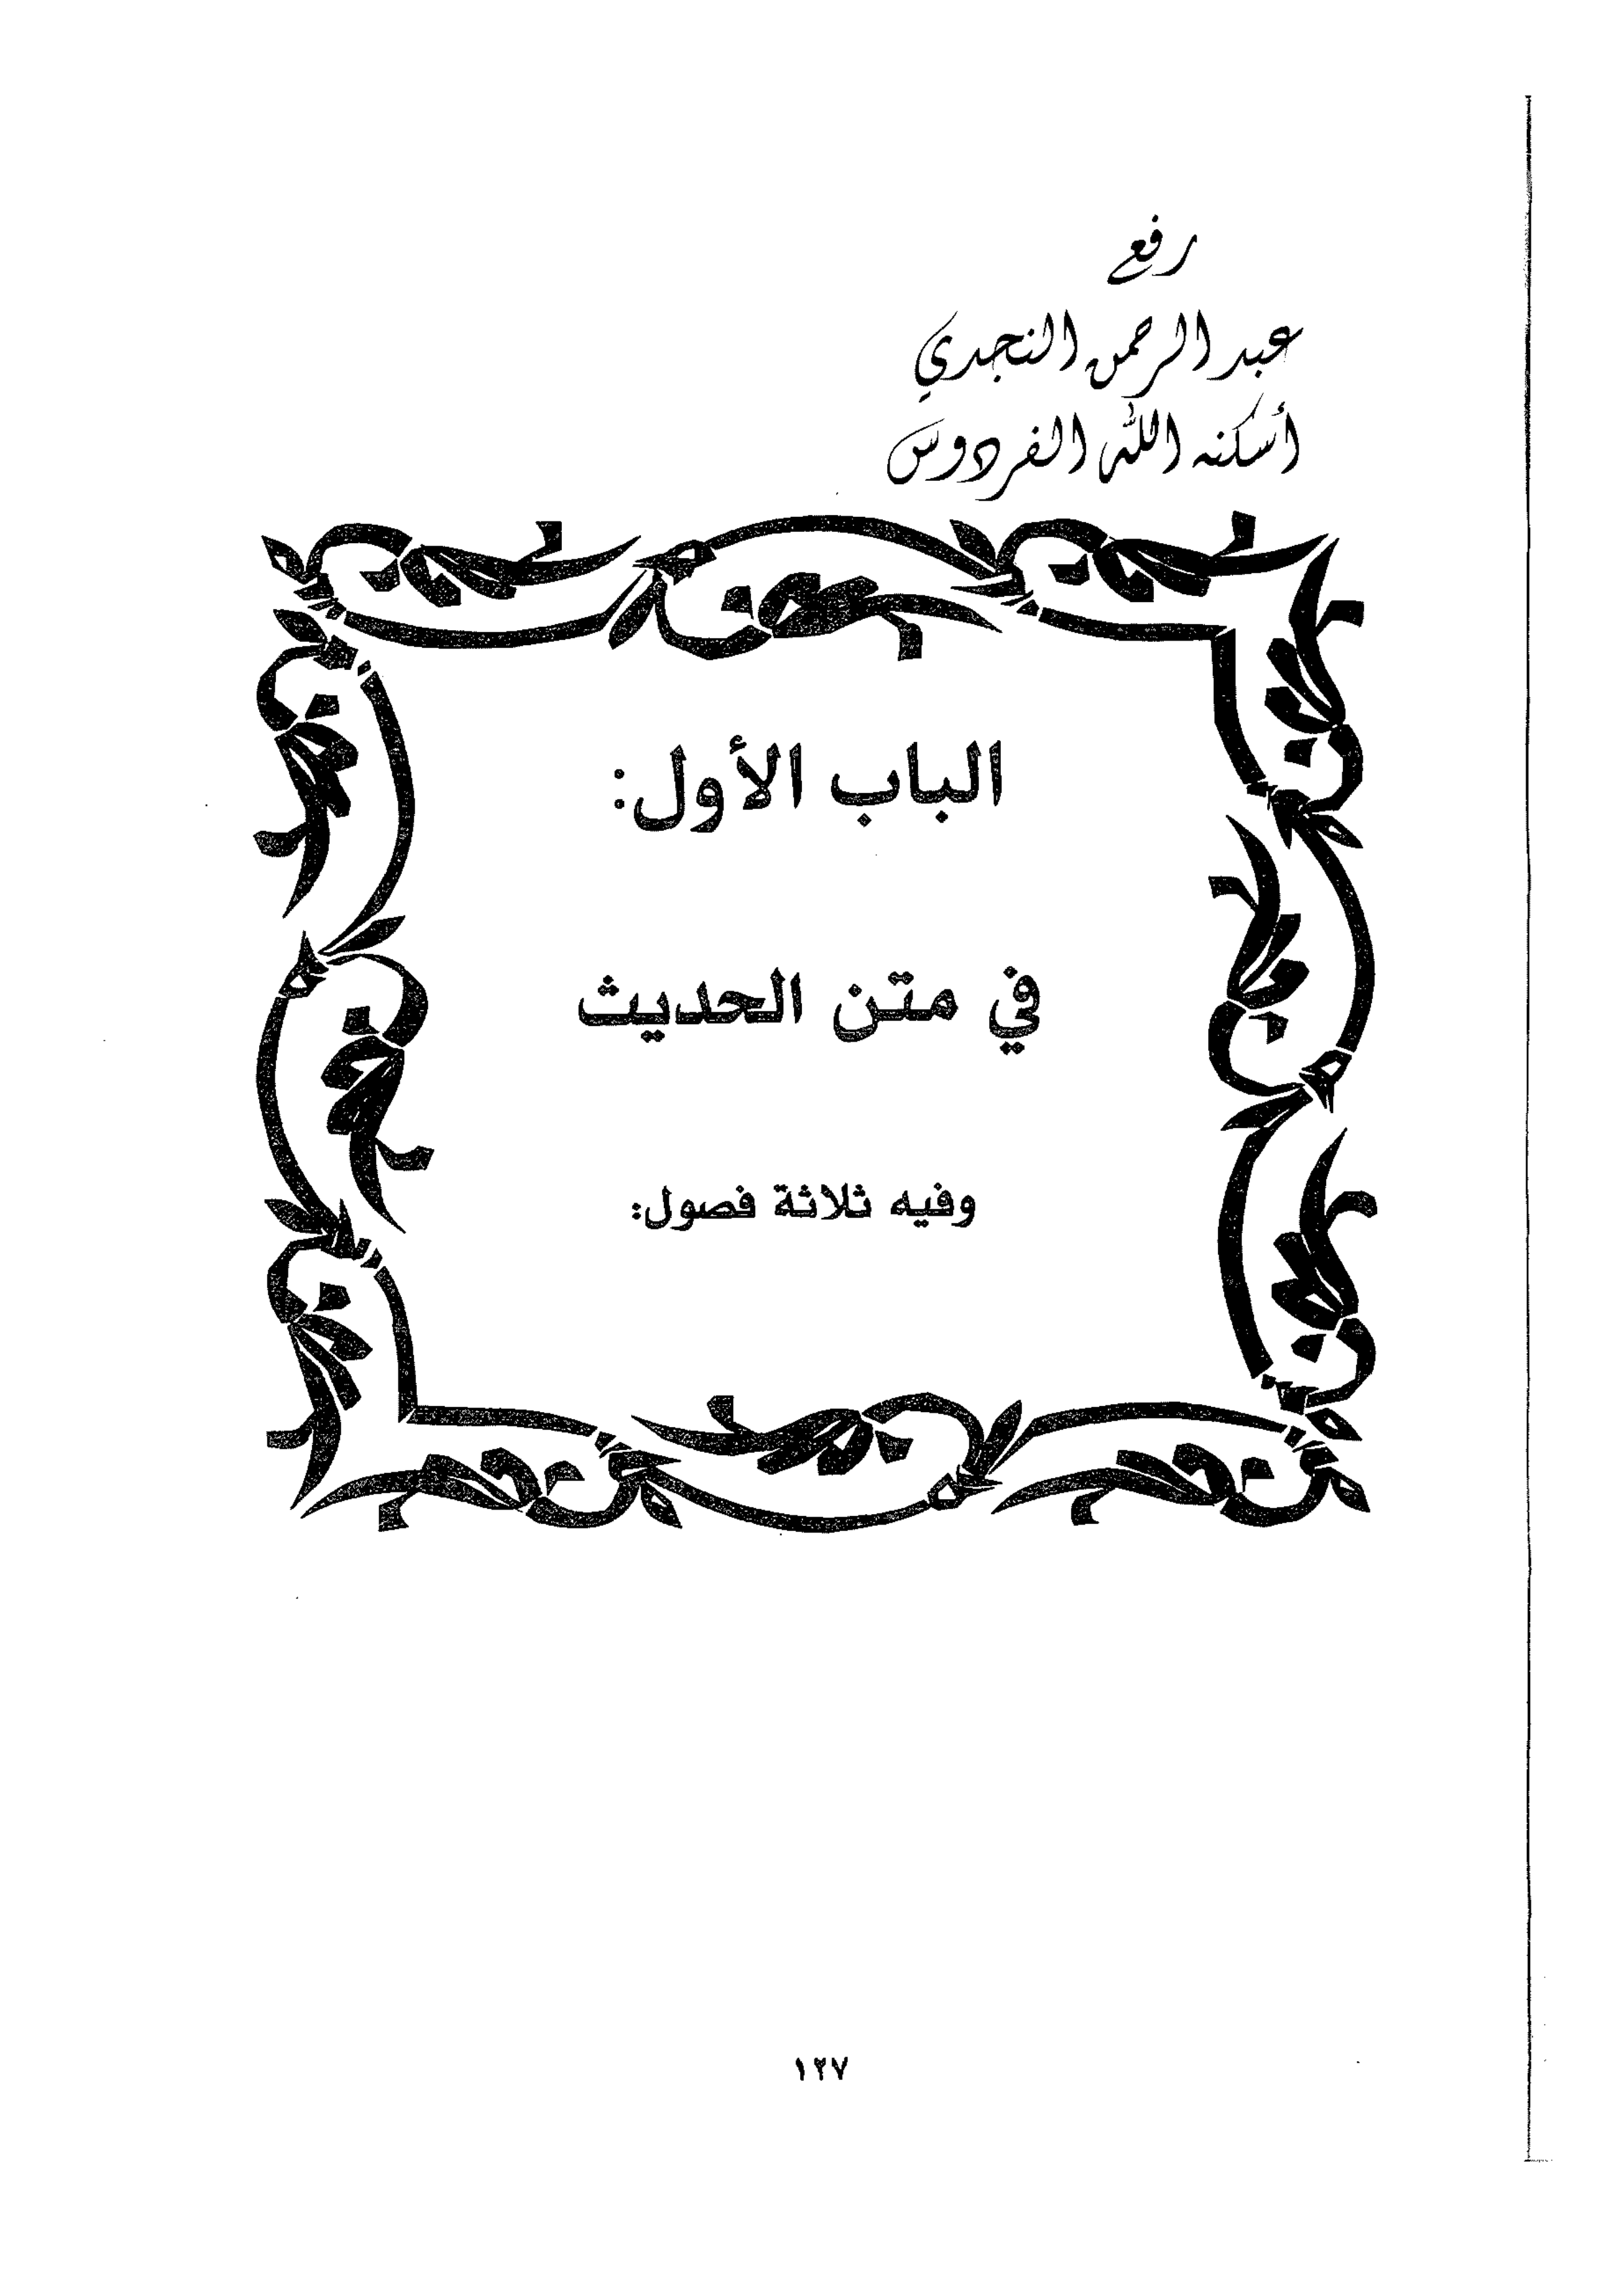 رفع
عبد الرحمن النجدي
أسكنه الله الفردوس
الباب الأول:
في متن الحديث
وفيه ثلاثة فصول:
١٢٧